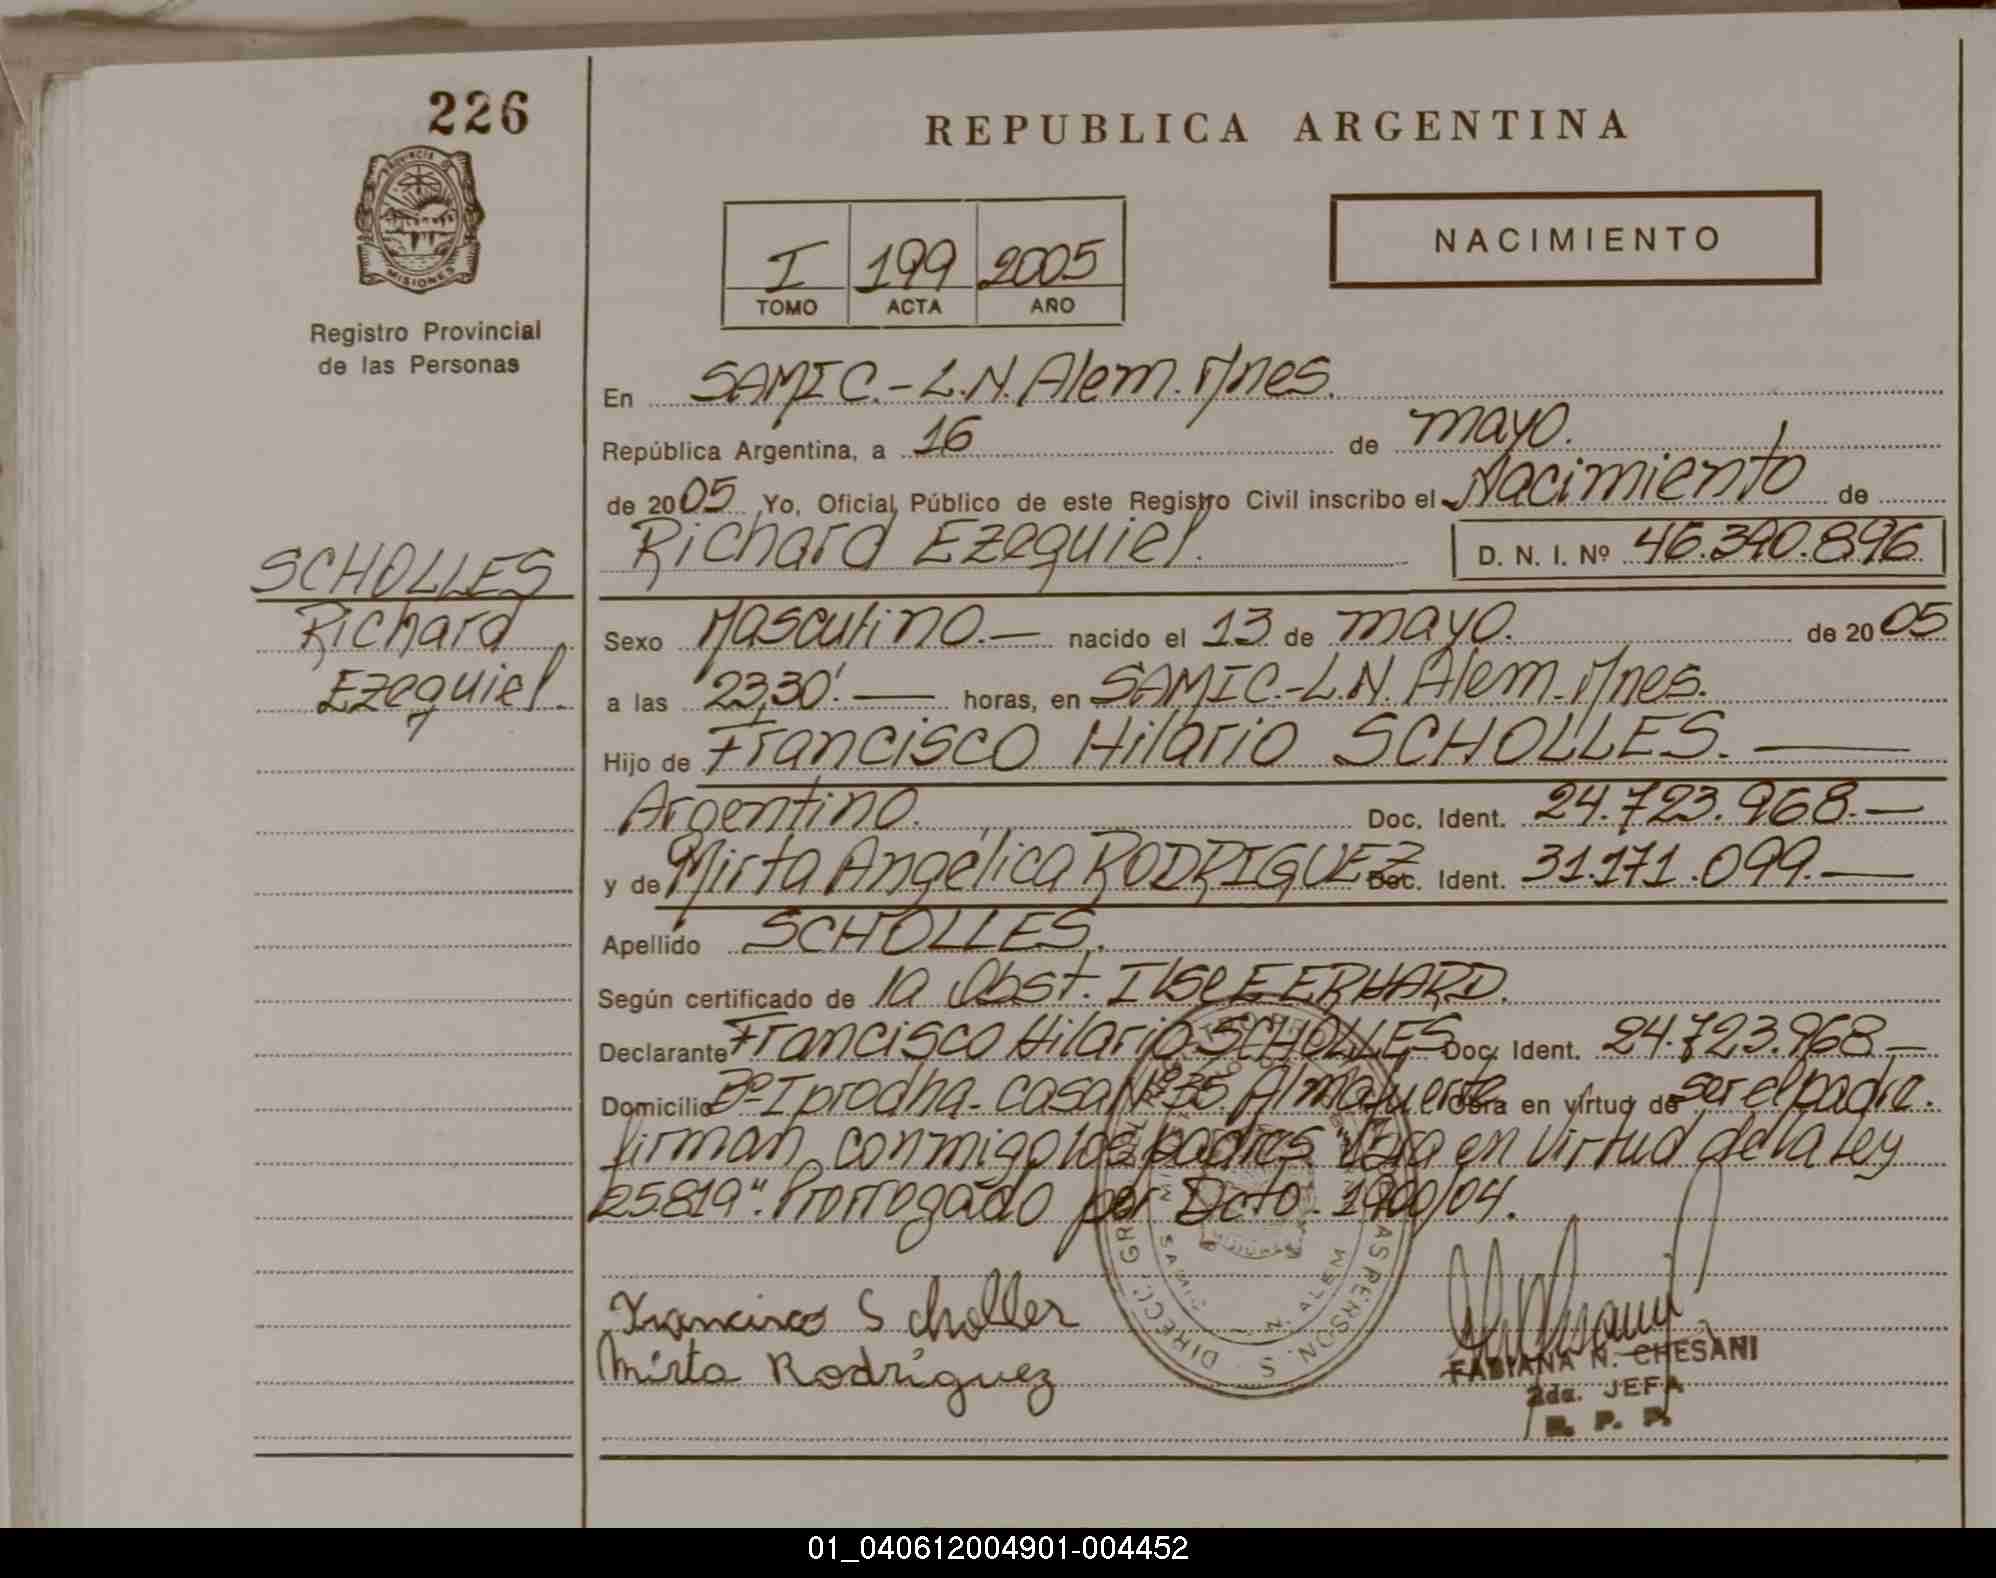 226
PROVINCIA DE
MISIONES
Registro Provincial
de las Personas
SCHOLLES
Richard
Ezequiel.
REPUBLICA ARGENTINA
I 199 2005
TOMO ACTA AÑO
NACIMIENTO
En SAMIC.-L.N.Alem.Mnes.
República Argentina, a 16 de mayo.
de 2005 Yo, Oficial Público de este Registro Civil inscribo el Nacimiento de
Richard Ezequiel. D. N. I. Nº 46.390.896
Sexo Masculino.— nacido el 13 de mayo. de 2005
a las 23,30'.— horas, en SAMIC.-L.N. Alem.Mnes.
Hijo de Francisco Hilario SCHOLLES.—
Argentino. Doc. Ident. 24.723.968.—
y de Mirta Angélica RODRIGUEZ Doc. Ident. 31.171.099.—
Apellido SCHOLLES.
Según certificado de la Obst. Ilse E ERHARD.
Declarante Francisco Hilario SCHOLLES Doc. Ident. 24.723.968—
Domicilio Bº Iprodha-casa Nº35 Almafuerte Obra en virtud de ser el padre.
firman conmigo los padres "Obra en virtud de la Ley
25.819". Prorrogado por Dcto. 1900/04.
Francisco Scholler
Mirta Rodríguez
FABIANA N. CHESANI
2da. JEFA
R. P. P.
DIRECC. GRAL. PERSON. S.
SAMIC N. ALEM
MISIONES
01_040612004901-004452